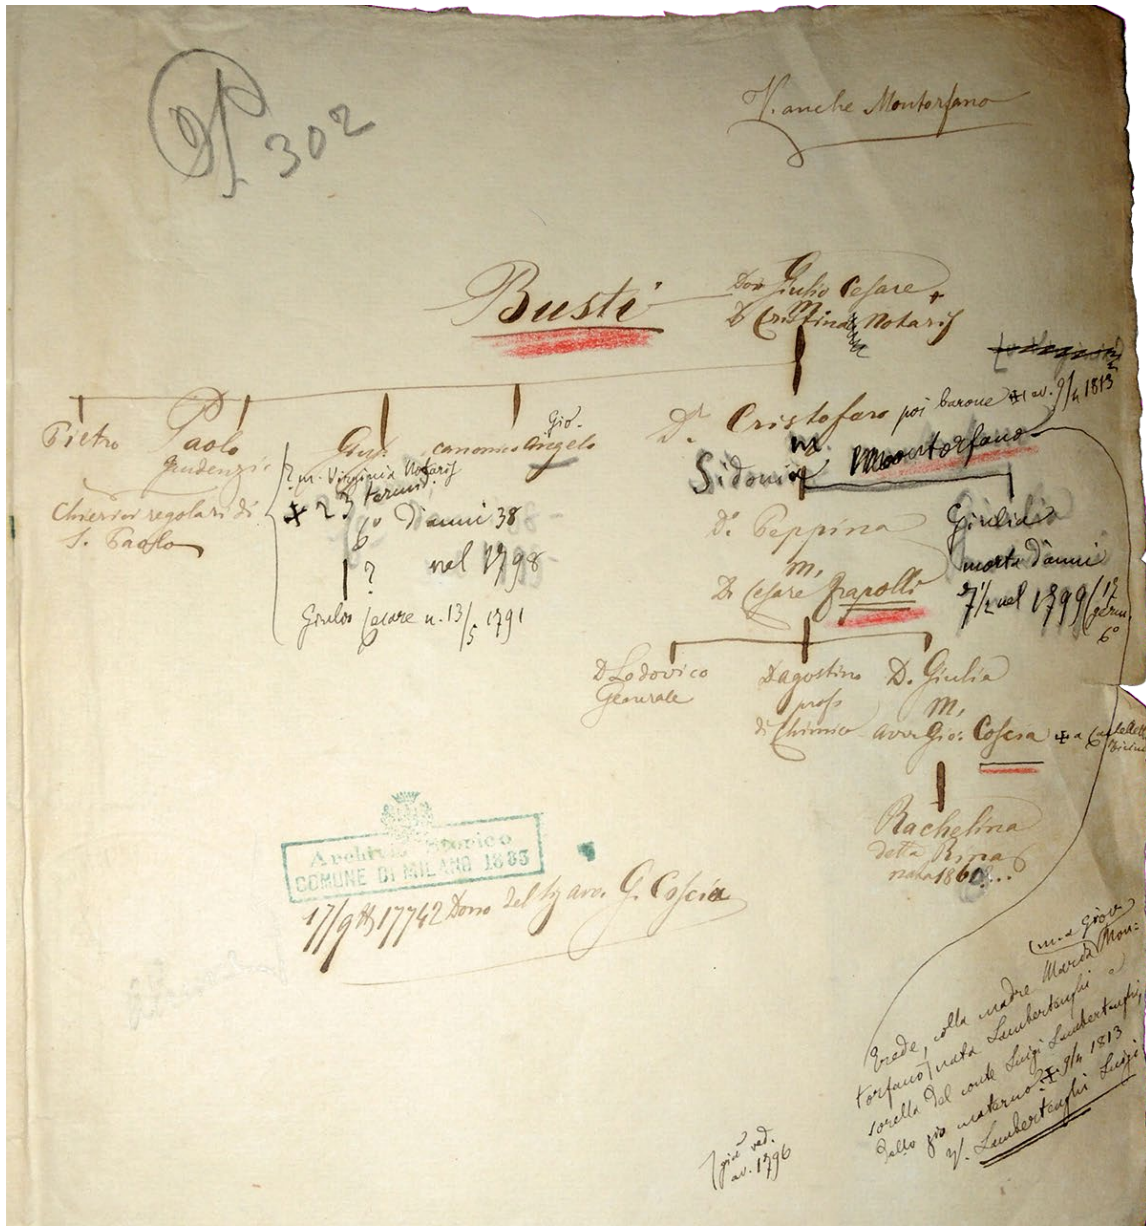 P. 302
V. anche Montorfano
Busti
Don Giulio Cesare
m.
D. Cristina Notaris
Pietro
Paolo
Gaudenzio
Chierici regolari di
S. Paolo
Gius.
canonico
Gio.
Angelo
? m. Virginia Notaris
✠ 23 termid.
6° d'anni 38
nel 1798
?
Giulio Cesare n. 13/5 1791
Dn Cristoforo poi barone ✠ av. 9/4 1813
m.
Sidonia Montorfano
Da Peppina
m.
Dn Cesare Frapolli
Giulia
morta d'anni
7 1/2 nel 1799 (13
germ.
6°
D Lodovico
Generale
D agostino
profs
di Chimica
D. Giulia
m.
avv. Gio: Coscia ✠ a
Rachelina
detta Rina
nata 186
Archivio Storico
COMUNE DI MILANO 1885
17/9 17742 Dono del Sig avv. G. Coscia
(m. a Giov.
Erede, colla madre Maria Mon=
torfano) nata Lambertenghi
sorella del conte Luigi Lambertenghi,
dello zio materno ✠ 9/4 1813
V. Lambertenghi Luigi
già ved.
av. 1796